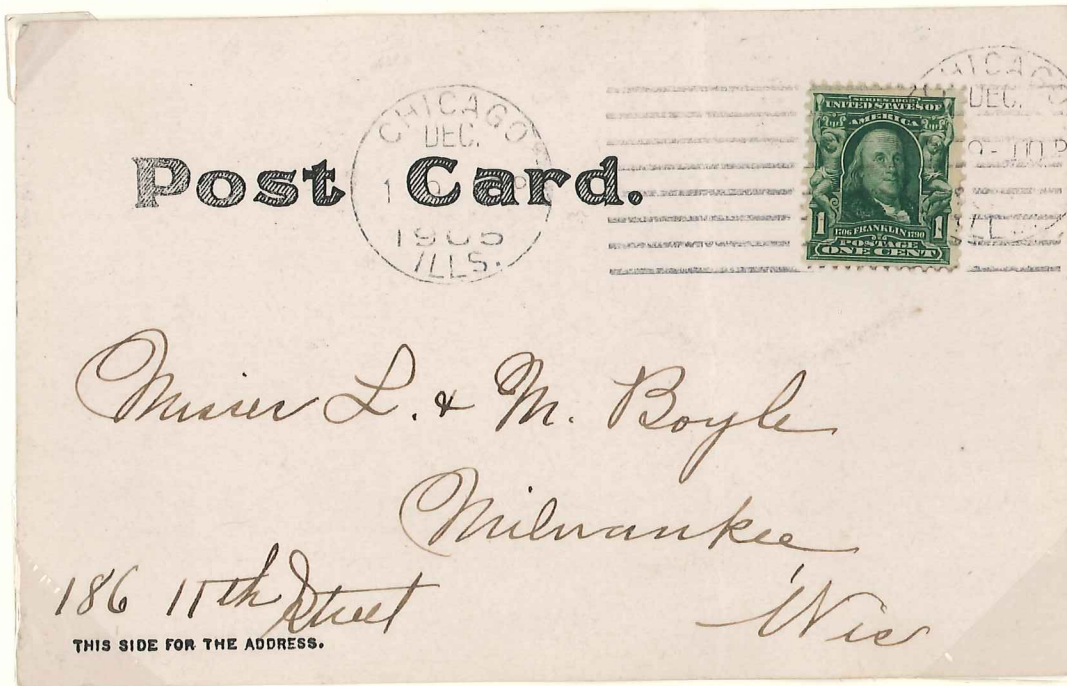 CHICAGO
DEC.
1905
ILLS.
Post Card.
CHICAGO
DEC.
SERIES 1902
UNITED STATES OF
AMERICA
1 1
1706 FRANKLIN 1790
POSTAGE
ONE CENT
Misses L. & M. Boyle
Milwaukee
186 11th Street
Wis
THIS SIDE FOR THE ADDRESS.